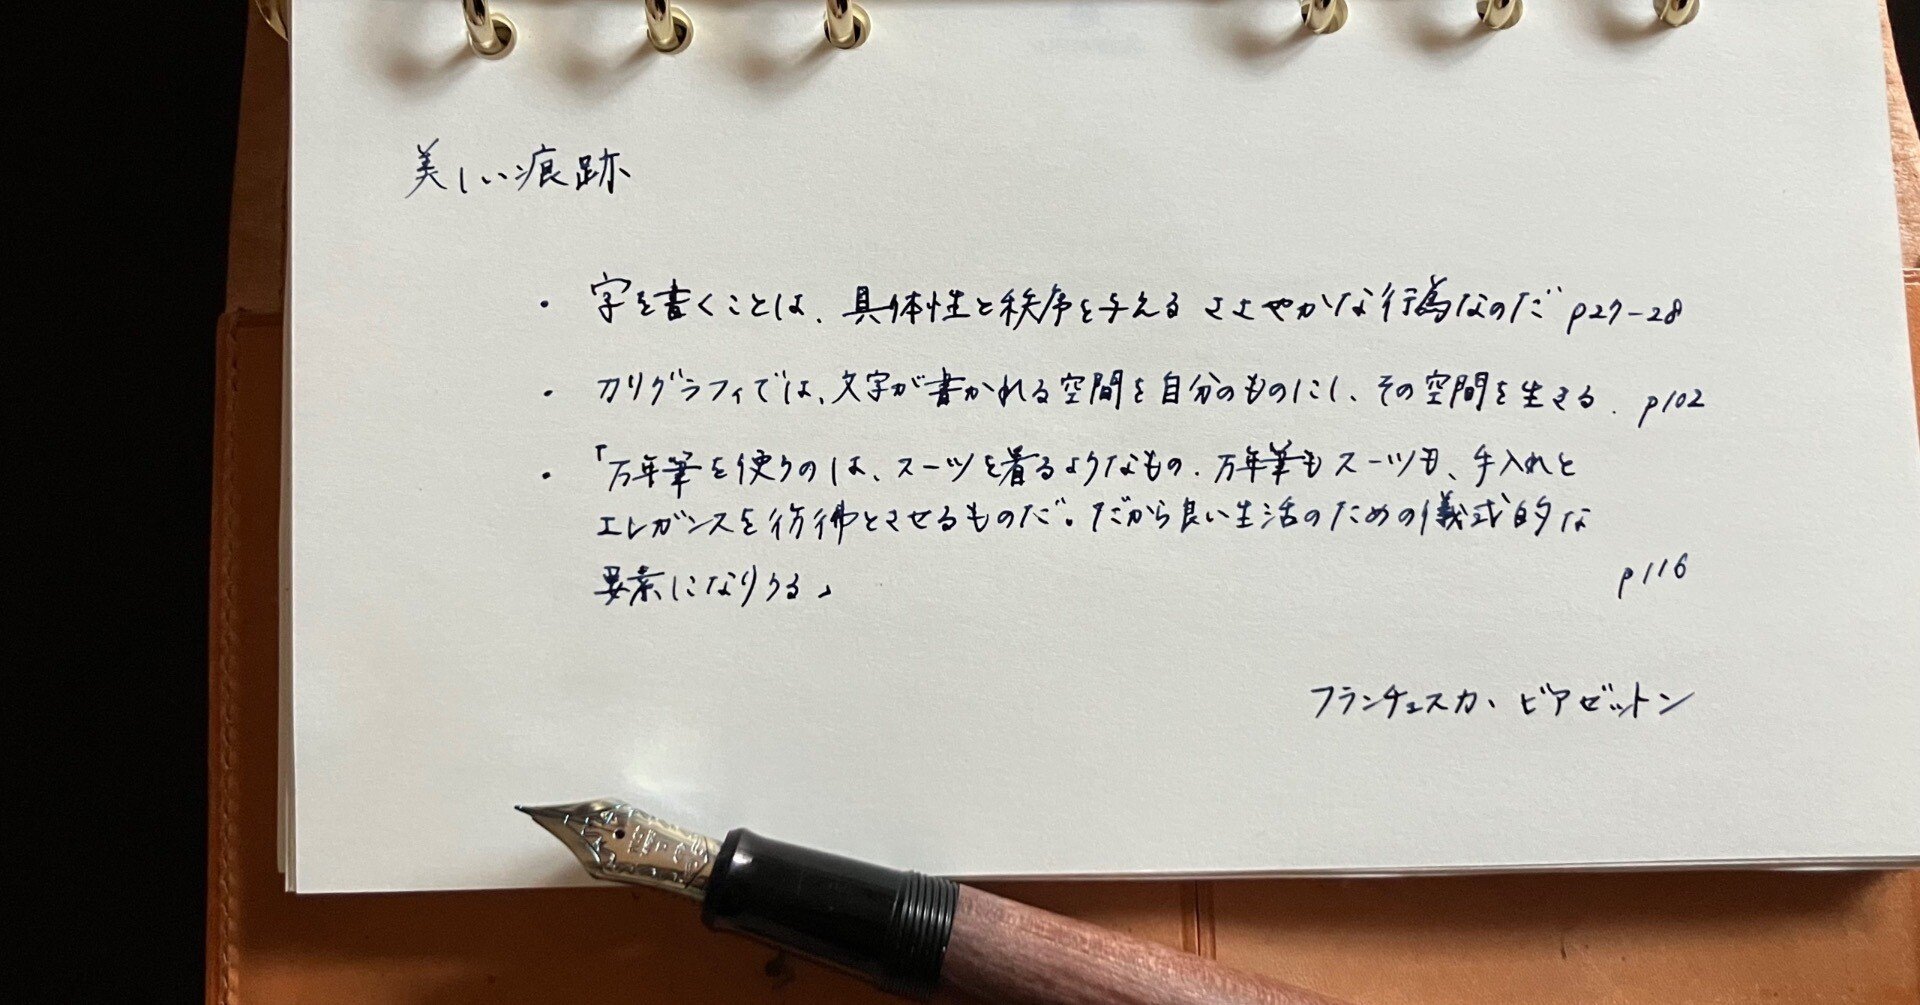 美しい痕跡
・字を書くことは、具体性と秩序を与えるささやかな行為なのだ p27-28
・カリグラフィでは、文字が書かれる空間を自分のものにし、その空間を生きる. p102
・「万年筆を使うのは、スーツを着るようなもの. 万年筆もスーツも、手入れと
エレガンスを彷彿とさせるものだ。だから良い生活のための儀式的な
要素になりうる」
p116
フランチェスカ、ビアゼットン